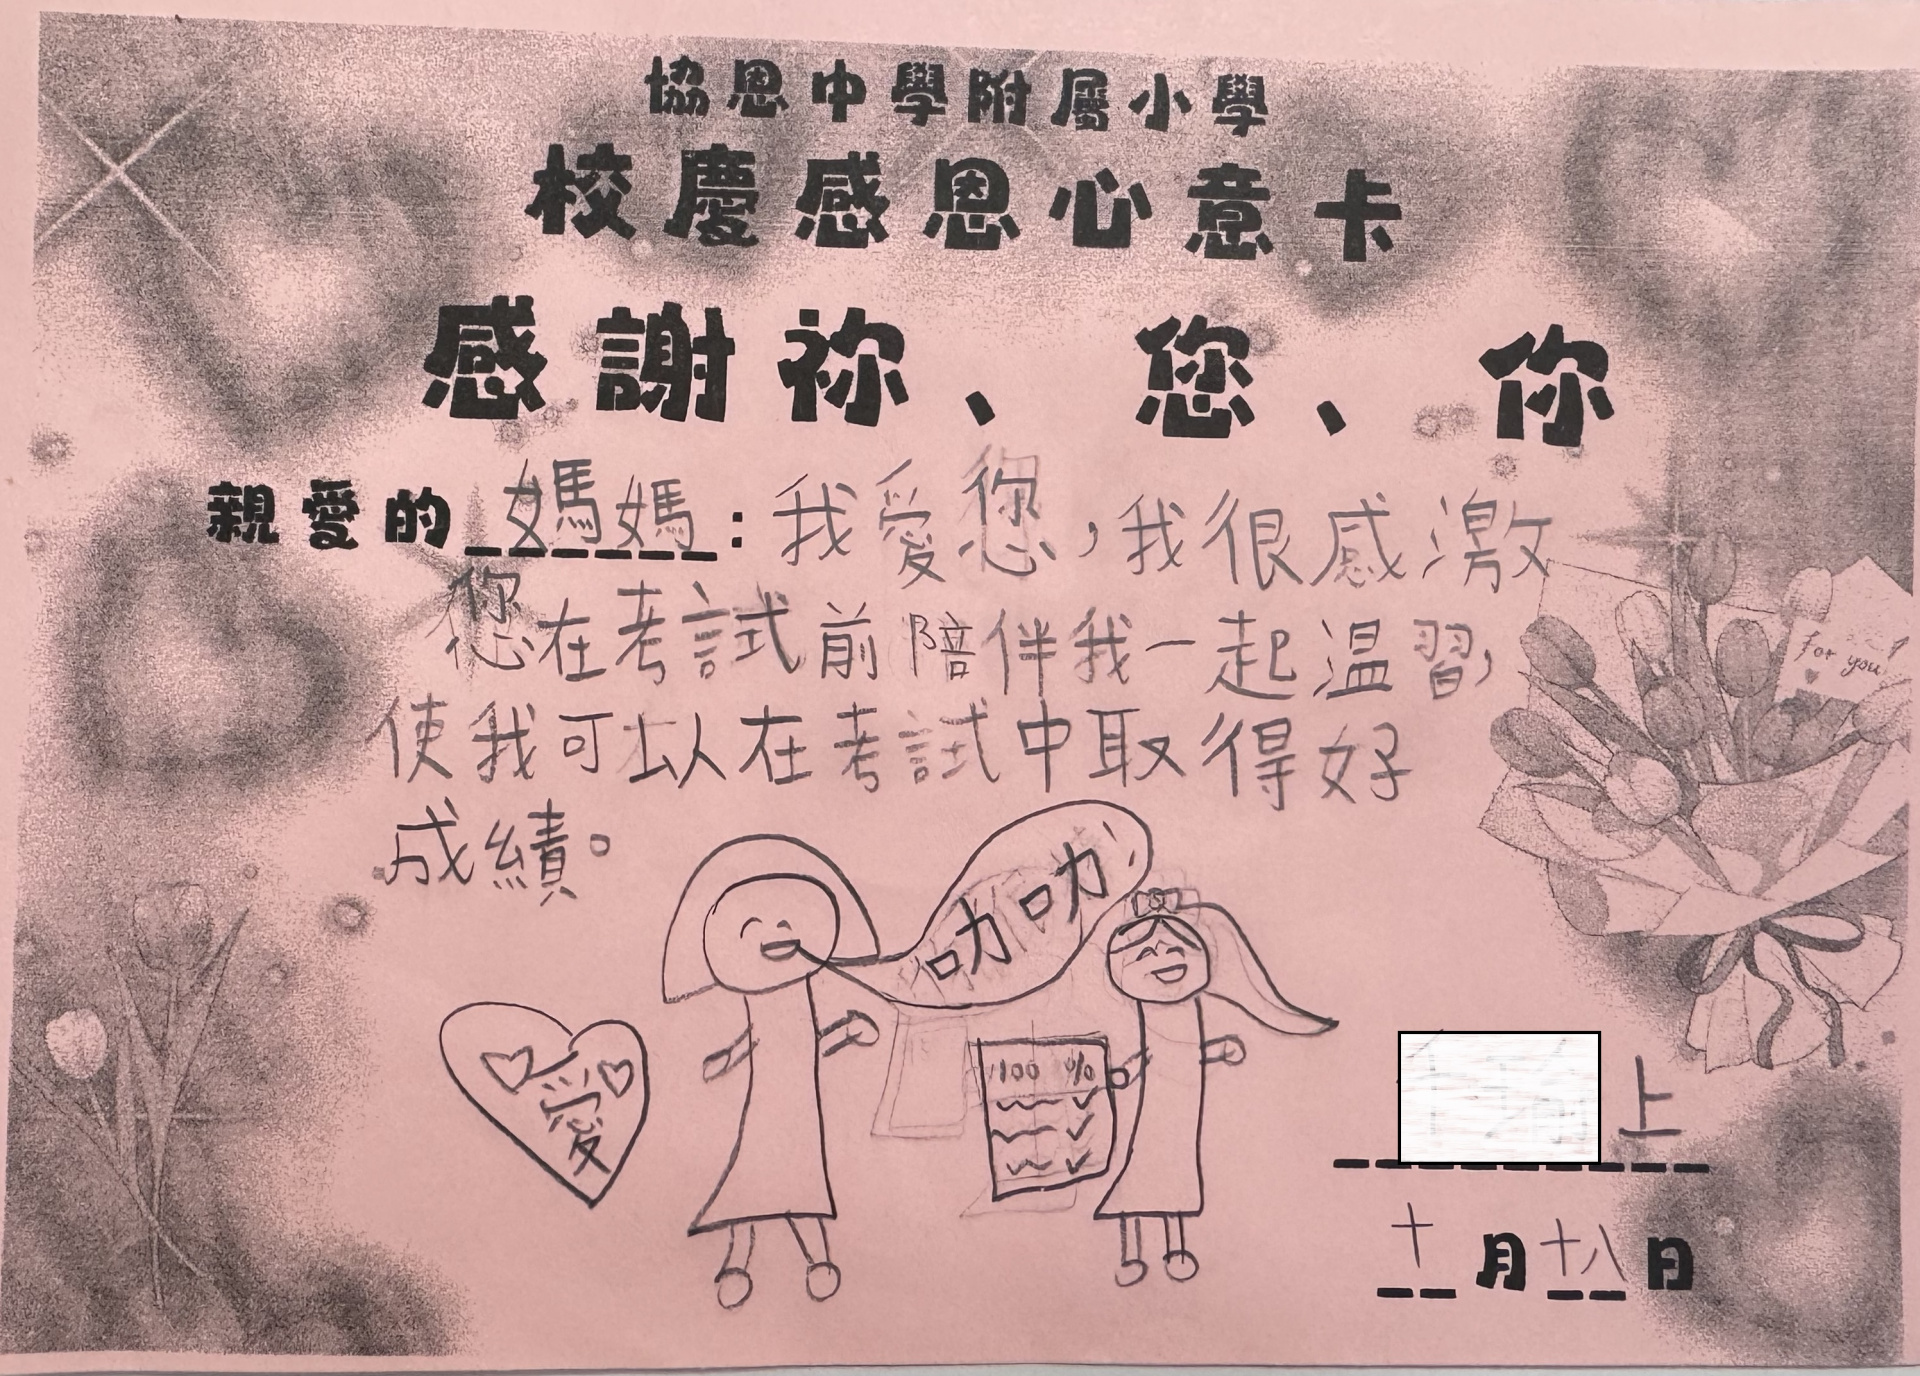 協恩中學附屬小學
校慶感恩心意卡
感謝祢、您、你
親愛的媽媽：我愛您，我很感激
您在考試前陪伴我一起温習，
使我可以在考試中取得好
成績。
for you
叻叻！
愛
100 %
上
十月十八日